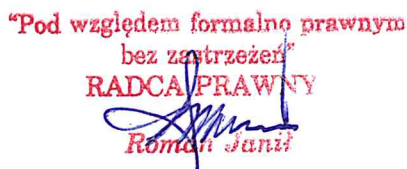 "Pod względem formalno prawnym
bez zastrzeżeń"
RADCA PRAWNY
Roman Janil